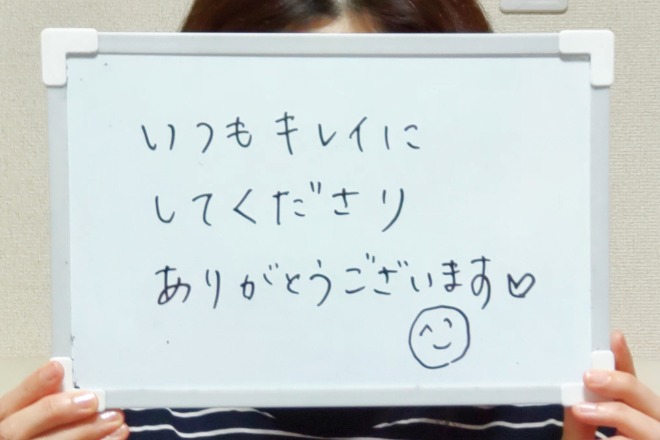 いつもキレイに
してくださり
ありがとうございます♡